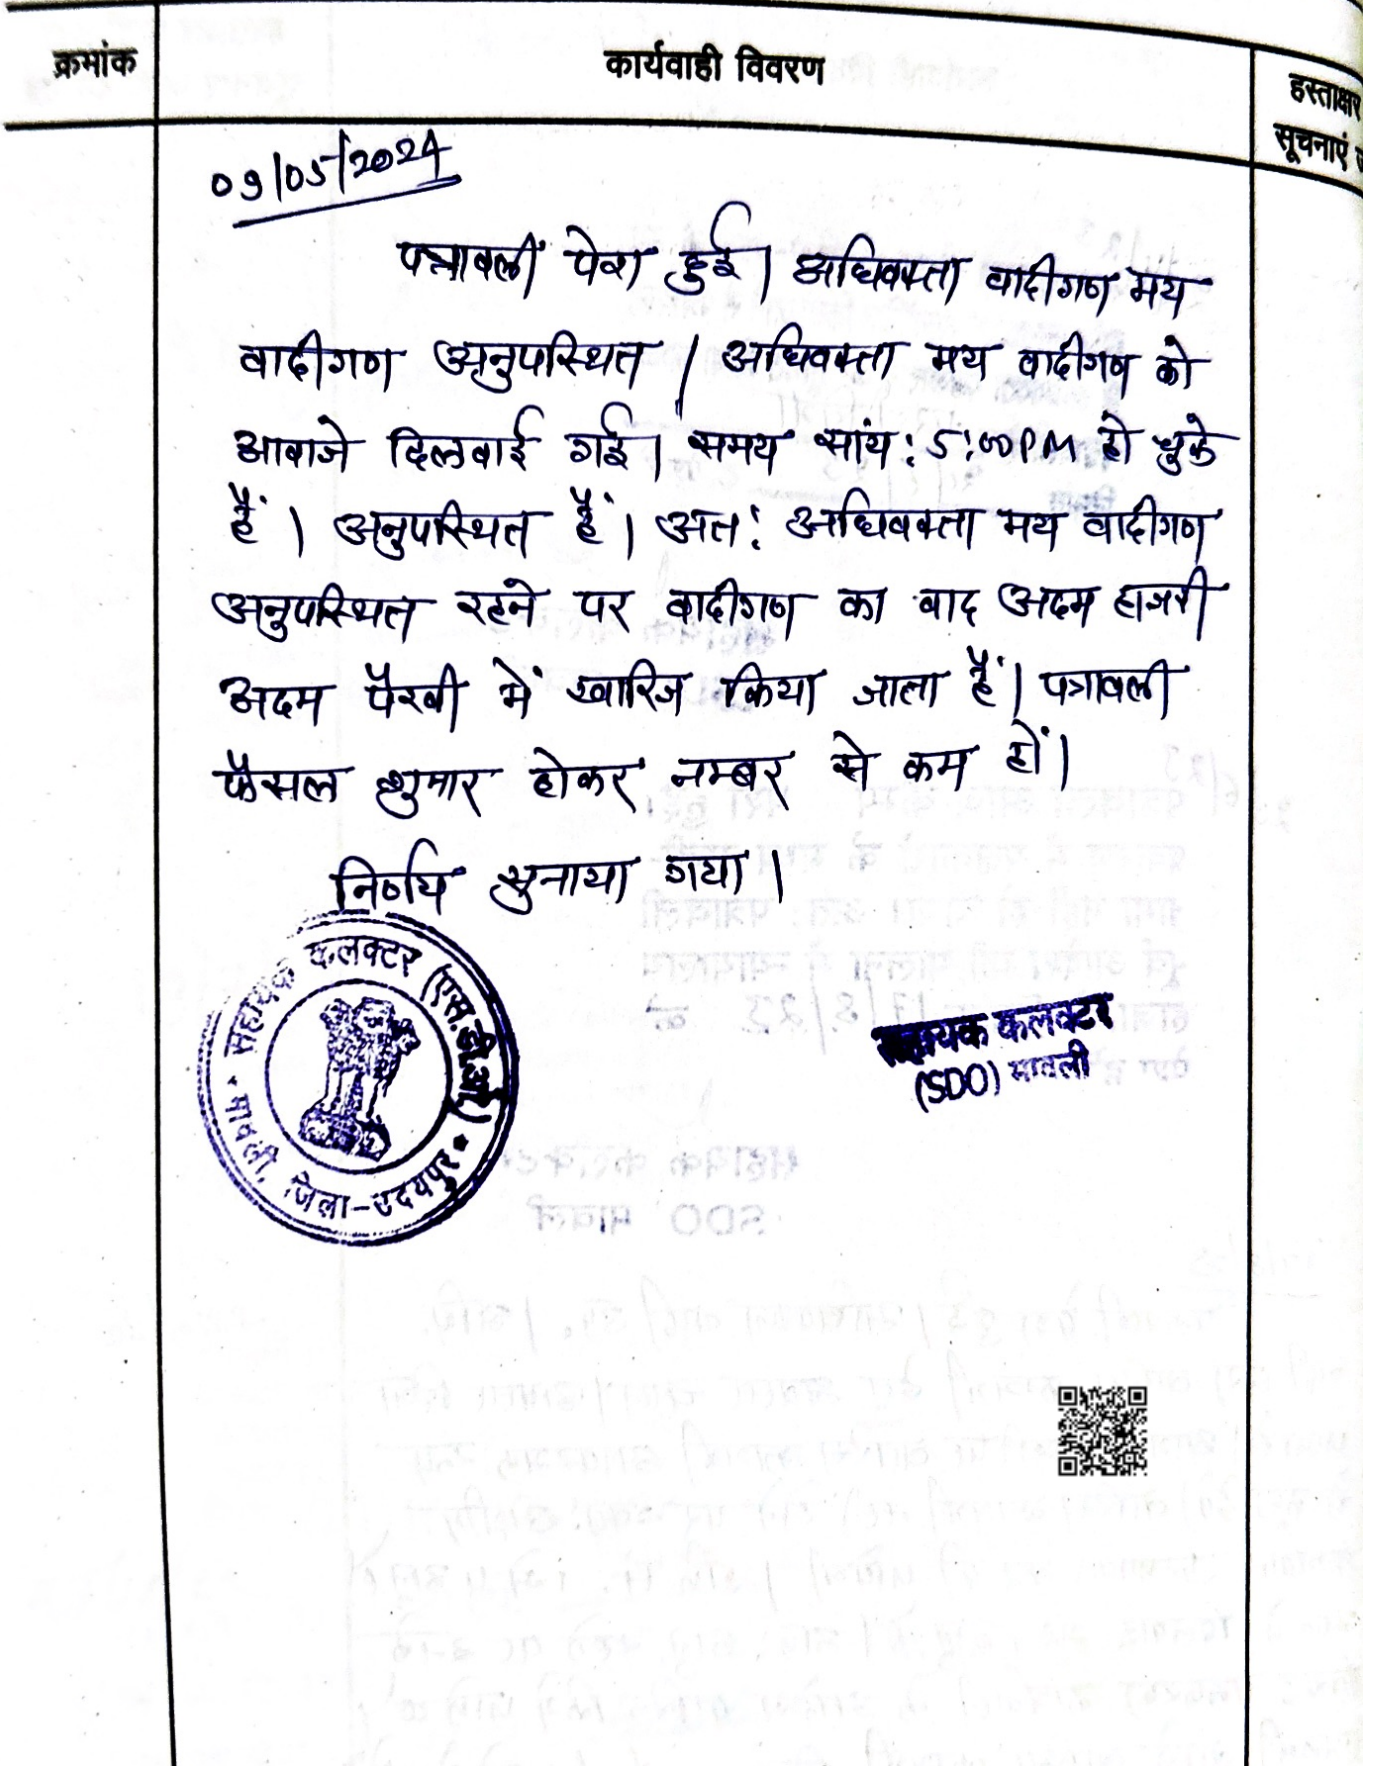 क्रमांक
कार्यवाही विवरण
हस्ताक्षर
सूचनाएं
09/05/2024
पत्रावली पेश हुई। अधिवक्ता वादीगण मय
वादीगण अनुपस्थित। अधिवक्ता मय वादीगण को
आवाजे दिलवाई गई। समय सांय: 5:00PM हो चुके
हैं। अनुपस्थित हैं। अत: अधिवक्ता मय वादीगण
अनुपस्थित रहने पर वादीगण का वाद अदम हाजरी
अदम पैरवी में खारिज किया जाता हैं। पत्रावली
फैसल शुमार होकर नम्बर से कम हों।
निर्णय सुनाया गया।
सहायक कलक्टर (एस.डी.ओ.)
मावली, जिला-उदयपुर
सहायक कलक्टर
(SDO) मावली